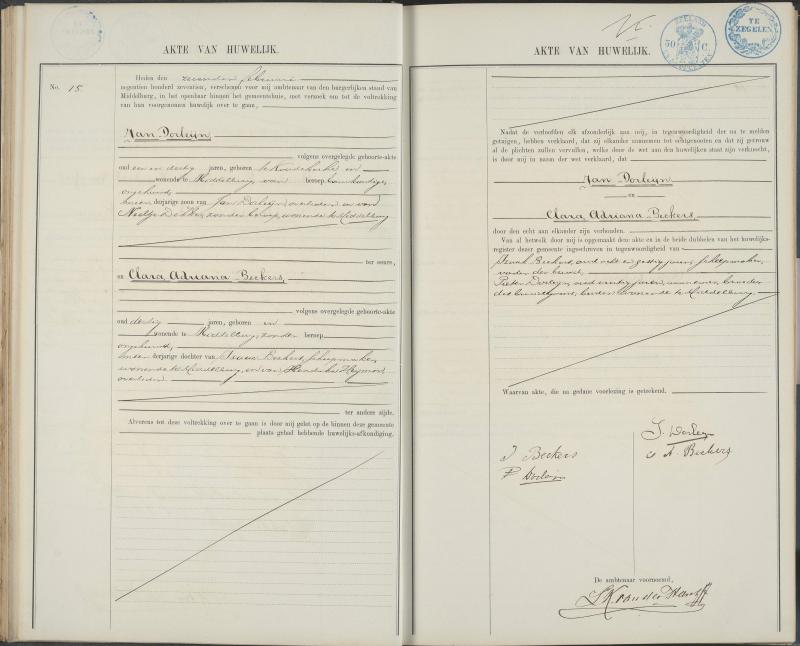 AKTE VAN HUWELIJK.
No. 15
Heden den zevenden februari
negentien honderd zeventien, verschenen voor mij ambtenaar van den burgerlijken stand van
Middelburg, in het openbaar binnen het gemeentehuis, met verzoek om tot de voltrekking
van hun voorgenomen huwelijk over te gaan,
Jan Dorleijn,
volgens overgelegde geboorte-akte
oud een en dertig jaren, geboren te Koudekerke en
wonende te Middelburg, van beroep
ongehuwd,
derjarige zoon van Jan Dorleijn, overleden en van
Neeltje Dekker, zonder beroep, wonende te Middelburg
ter eenre,
en Clara Adriana Beekers,
volgens overgelegde geboorte-akte
oud dertig jaren, geboren en
wonende te Middelburg, zonder beroep
ongehuwd,
derjarige dochter van Beekers, scheepmaker,
wonende te Middelburg, en van
overleden
ter andere zijde.
Alvorens tot deze voltrekking over te gaan is door mij gelet op de binnen deze gemeente
plaats gehad hebbende huwelijks-afkondiging.
TE
ZEGELEN
ZEELAND
50 C.
AKTE VAN HUWELIJK.
Nadat de verloofden elk afzonderlijk aan mij, in tegenwoordigheid der na te melden
getuigen, hebben verklaard, dat zij elkander aannemen tot echtgenooten en dat zij getrouw
al de plichten zullen vervullen, welke door de wet aan den huwelijken staat zijn verknocht,
is door mij in naam der wet verklaard, dat
Jan Dorleijn
en
Clara Adriana Beekers,
door den echt aan elkander zijn verbonden.
Van al hetwelk door mij is opgemaakt deze akte en in de beide dubbelen van het huwelijks-
register dezer gemeente ingeschreven in tegenwoordigheid van
Beekers, oud acht en zestig jaren, scheepmaker,
vader der bruid,
Pieter Dorleijn, oud jaren, broeder
des bruidegoms, beiden wonende te Middelburg
Waarvan akte, die na gedane voorlezing is geteekend.
J. Dorleijn
C A. Beekers
J Beekers
P Dorleijn
De ambtenaar voornoemd,